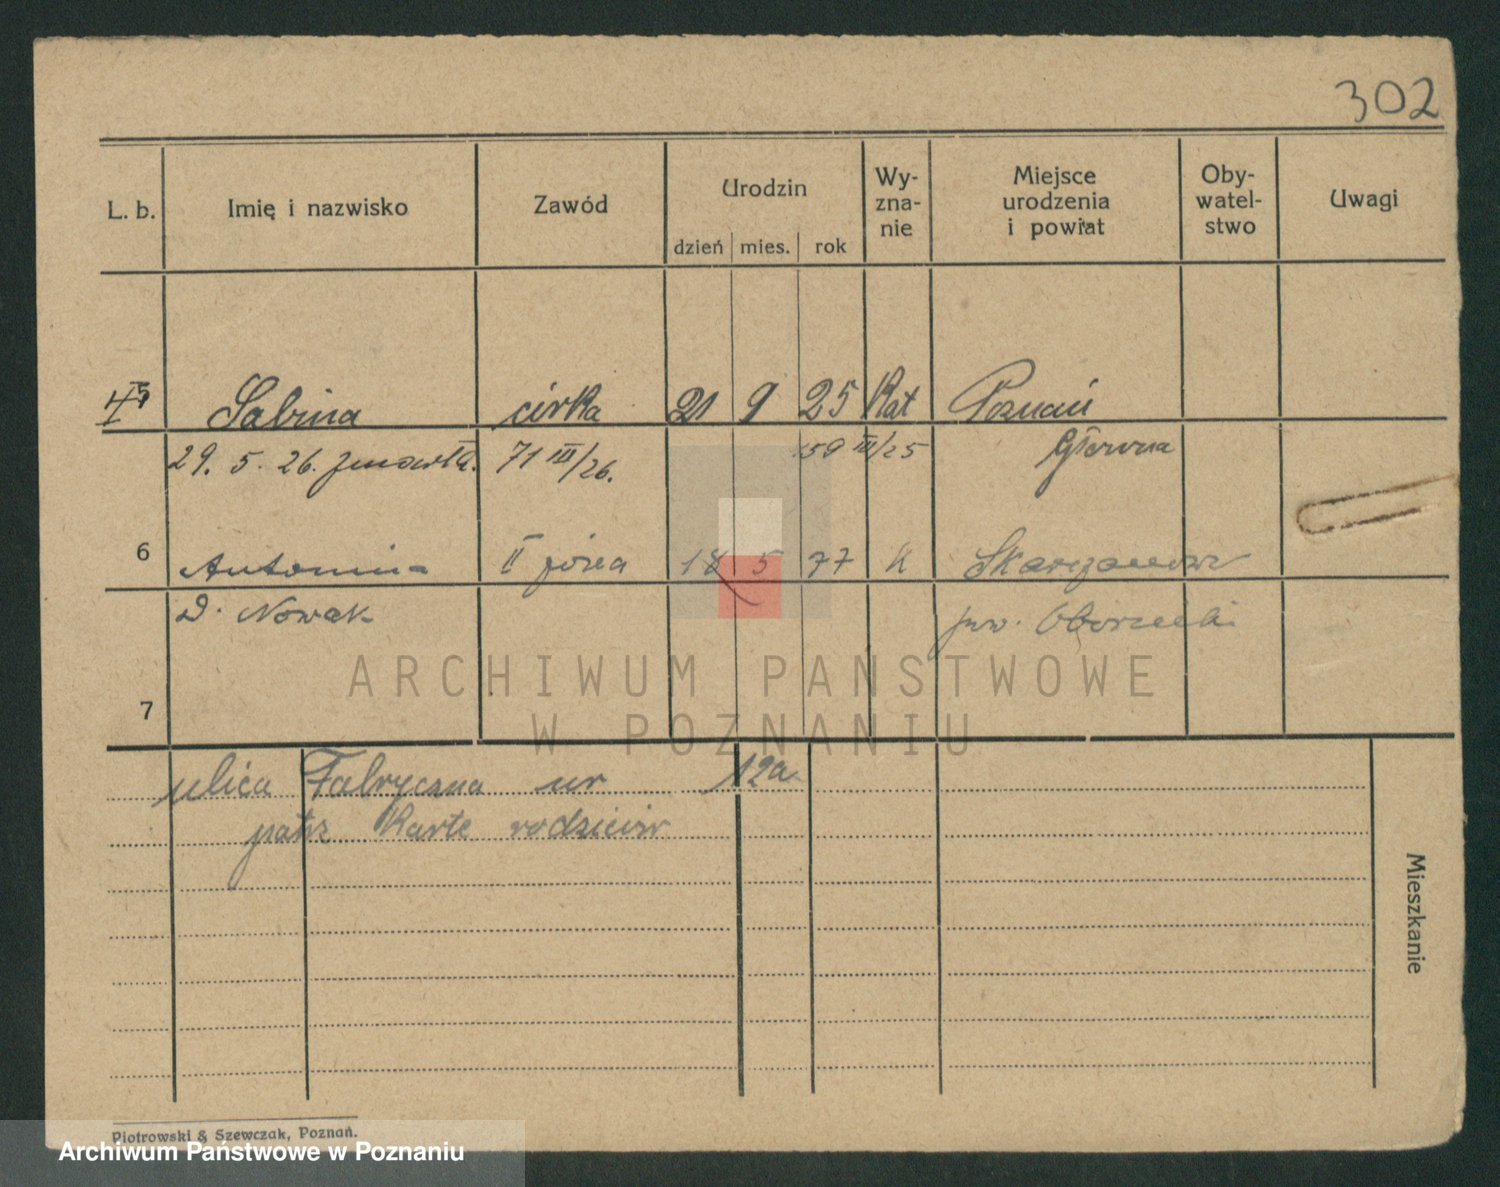 302
L. b. Imię i nazwisko Zawód Urodzin dzień mies. rok Wy- zna- nie Miejsce urodzenia i powiat Oby- watel- stwo Uwagi
5 Sabina córka 21 9 25 Kat Poznań
29. 5. 26. zmarła. 71 III/26. 159 III/25 Główna
6 Antonina II żona 18 5 77 k
D. Nowak pow. Obornicki
7
ARCHIWUM PAŃSTWOWE
W POZNANIU
ulica Fabryczna nr 12a.
patrz Kartę rodziców
Mieszkanie
Piotrowski & Szewczak, Poznań.
Archiwum Państwowe w Poznaniu